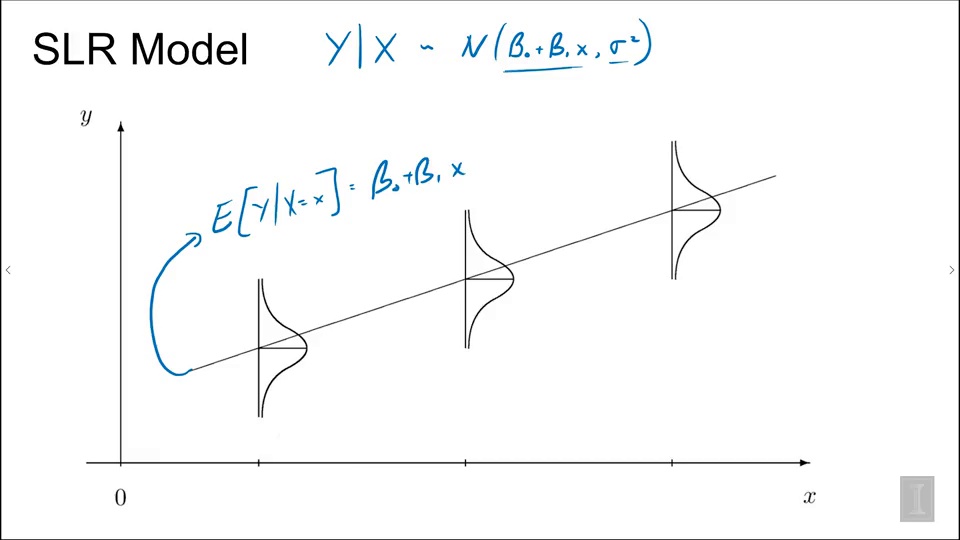 SLR Model
Y|X ~ N(β₀+β₁x, σ²)
y
E[Y|X=x] = β₀+β₁x
0
x
I